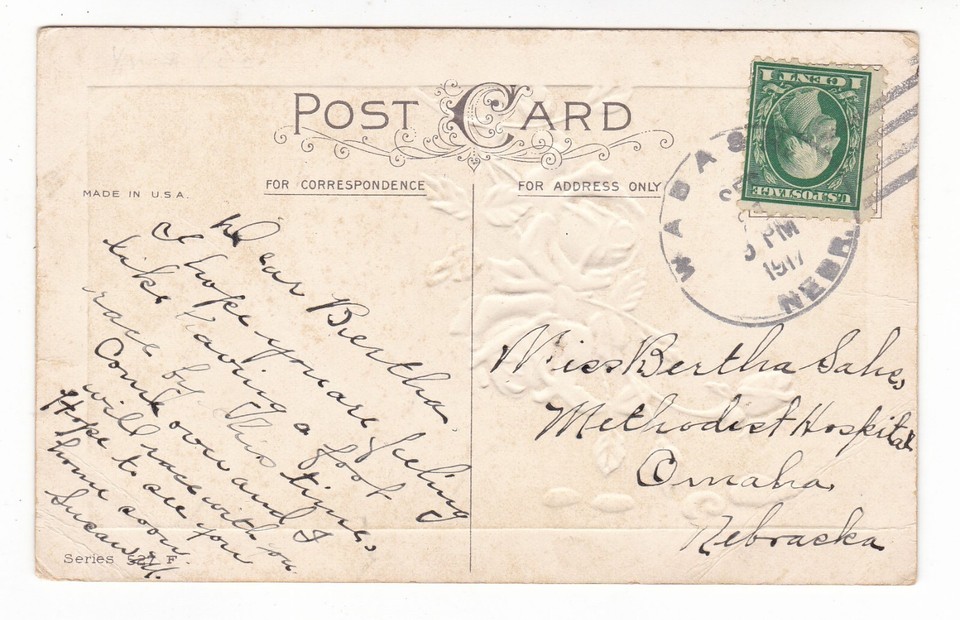 POST CARD
MADE IN U.S.A.
FOR CORRESPONDENCE
FOR ADDRESS ONLY
1 CENT 1
U.S. POSTAGE
WABASH
PM
1917
NEBR.
Dear Bertha.
I hope you are feeling
like having a foot
race by this time,
Come over and I
will race with you.
Hope to see you
home soon.
Susan
Miss Bertha
Methodist Hospital
Omaha
Nebraska
Series F